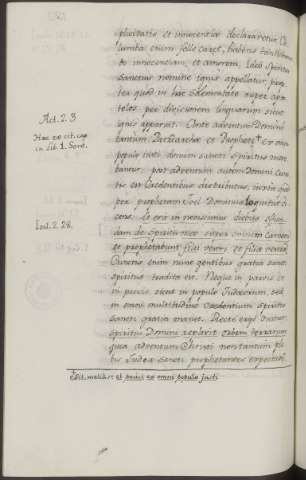 plicitatis, et innocentiæ declararetur. Co
lumba enim felle caret, habens
innocentiam, et amorem. Ideo Spiritus
Sanctus nomine ignis appellatur, prop
terea quod in hac solemnitate super Apos
tolos per divisionem linguarum sicut
ignis apparuit. Ante adventum Domini
tantum Patriarchæ et Prophetæ + ex omni
populo isti donum sancti Spiritus merue
runt, post adventum autem Domini cunc
tis est Credentibus distributus, iuxta quod
per prophetam Joel Dominus loquitur di
cens. Et erit in novissimis diebus effun
dam de Spiritu meo super omnem carnem
et prophetabunt filii vestri et filiæ vestræ.
Cunctis enim nunc gentibus gratia sancti
spiritus tradita est. Neque in paucis et
in parvis sicut in populo Iudæorum, sed
in omni multitudine Credentium spiritus
sancti gratia manet. Recte ergo dicitur
Spiritus Domini replevit orbem terrarum
quia adventum Christi non tantum in ple
be Iudæa sancti prophetantes expectant
Act. 2. 3
Hac ex cit. cap.
in lib. 1. Sent.
Joel. 2. 28.
+ Edit. melius: et pauci ex omni populo justi